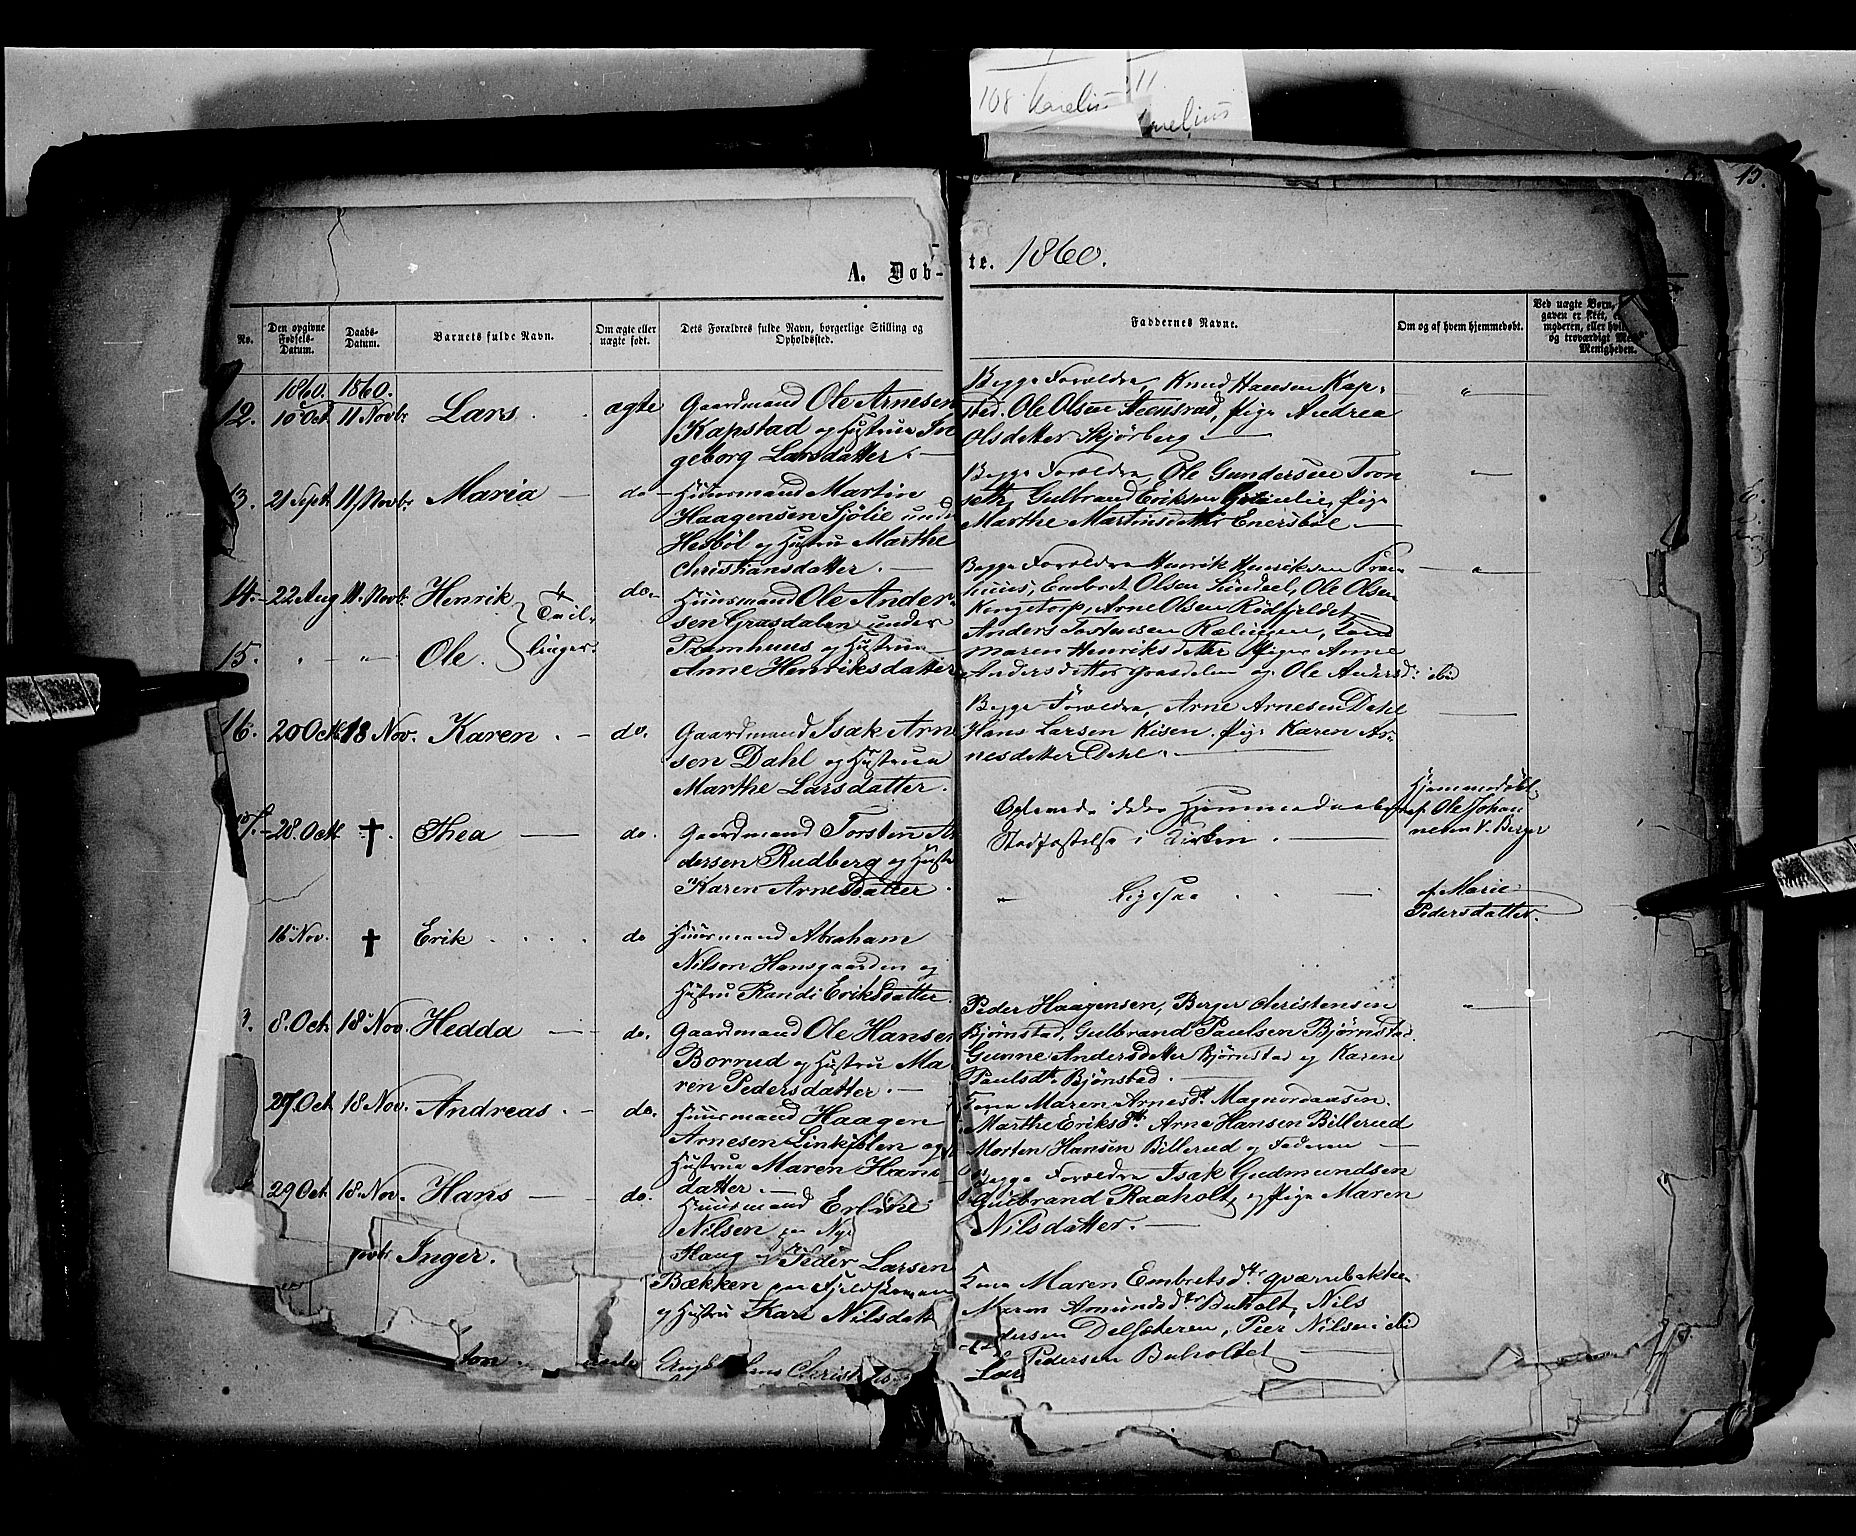 108 Karelius 11
Karelius
15.
A. Døb-te. 1860.
No.
Den opgivne Fødsels-Datum.
Daabs-Datum.
Barnets fulde Navn.
Om ægte eller uægte født.
Dets Forældres fulde Navn, borgerlige Stilling og Opholdssted.
Faddernes Navne.
Om og af hvem hjemmedøbt.
Ved uægte Børn,
gaven er skeet,
moderen, eller
og troværdigt
Menigheden.
1860. 1860.
12. 10 Oct 11 Novbr. Lars ægte
Gaardmand Ole Arnesen
Kapstad og Hustrue In
geborg Larsdatter.
Begge Forældre, Knud Hansen Kap-
stad. Ole Olsen Steensrud, Pige Andrea
Olsdatter Skjørberg
13. 21 Sept. 11 Novbr. Maria do
Huusmand Martin
Haagensen Sjølie under
Hesbøl og Hustru Marthe
Christiansdatter.
Begge Forældre, Ole Gundersen Tron
seth, Gulbrand Eriksen Grønlie, Pige
Marthe Martinsdatter Enersbøl
14. 22 Aug 11. Novbr. Henrik do.
15. " " Ole. Tvil-
linger.
Huusmand Ole Ander-
sen Grasdalen under
Pramhuus og Hustrue
Anne Henriksdatter
Begge Forældre Henrik Henriksen Pram
huus, Embret Olsen Sundeel, Ole Olsen
Kongetorp, Arne Olsen Rødfjeldet
Anders Torstensen Rælingen, Kone
Maren Henriksdatter Piger Anne
Andersdatter Grasdalen og Ole Andersd: ibid
16. 20 Oct 18 Nov. Karen do.
Gaardmand Isak Arn
sen Dahl og Hustrue
Marthe Larsdatter.
Begge Forældre, Arne Arnesen Dahl
Hans Larsen Kiisen. Pige Karen Ar-
nesdatter Dahl.
17. 28. Oct † Thea do.
Gaardmand Torsten An
dersen Rudberg og Hustr
Karen Arnesdatter
Oplevede ikke Hjemmedaabens
Stadfæstelse i Kirken.
Hjemmedøbt
af Ole Johan
nesen V. Berger
16 Nov. † Erik do
Huusmand Abraham
Nilsen Hansgaarden og
Hustru Randi Eriksdatter
" Ligesaa
af Marie
Pedersdatter.
8. Oct 18 Nov. Hedda do.
Gaardmand Ole Hansen
Borrud og Hustru Ma
ren Pedersdatter.
Peder Haagensen, Berger Christensen
Bjørnstad, Gulbrand Paulsen Bjørnstad.
Gunne Andersdatter Bjørnstad og Karen
Paulsdt. Bjønstad.
27. Oct 18 Nov. Andreas do.
Huusmand Haagen
Arnesen Linkjølen og
Hustrue Maren Hans
datter.
Kone Maren Arnesdt Magnordaasen.
Marthe Eriksdtt. Arne Hansen Billerud
Morten Hansen Billerud og Faderen
29 Oct 18 Nov. Hans do.
Huusmand
Nilsen
Haug og
Begge Forældre Isak Gudmundsen
Gulbrand Raaholt og Pige Maren
Nilsdatter.
novbr Inger.
Peder Larsen
Bækken
og Hustru Kari Nilsdatt
Kone Maren Embretsdtr Qværnbakken
Maren Amundsdtr Buholt, Nils
dersen Delsæteren, Peer Nilsen ibid
Pedersen Buholtet
ton
Lars Christ
Lar